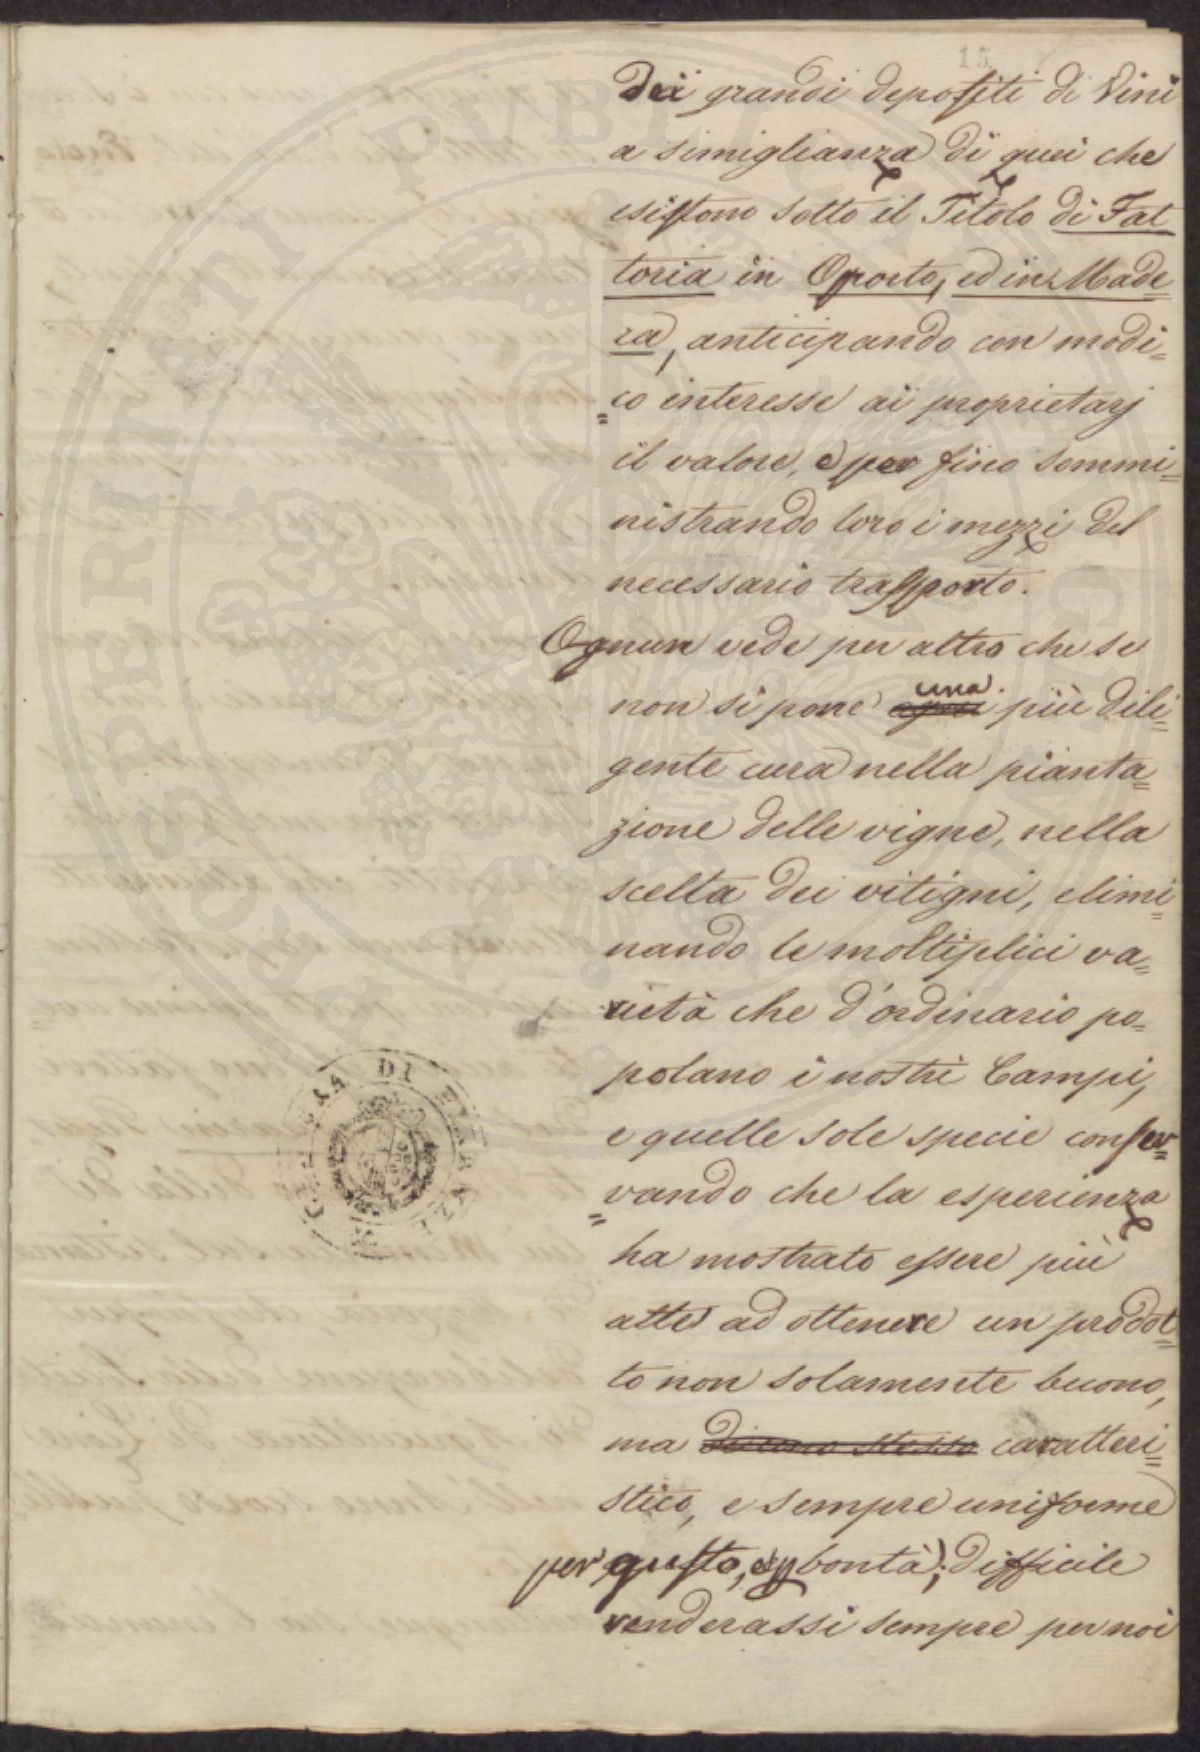 15
Dei grandi depositi di Vini
a simiglianza di quei che
esistono sotto il Titolo di Fat
toria in Oporto, ed in Made=
ra, anticipando con modi=
=co interesse ai proprietarj
il valore, e per fino sommi=
nistrando loro i mezzi del
necessario trasporto.
Ognun vede per altro che se
non si pone una più dili=
gente cura nella pianta=
zione delle vigne, nella
scelta dei vitigni, elimi=
nando le moltiplici va=
rietà che d'ordinario po=
polano i nostri Campi,
e quelle sole specie conser=
=vando che la esperienza
ha mostrato essere più
atte ad ottenere un prodot=
to non solamente buono,
ma caratteri=
stico, e sempre uniforme
per gusto, bontà; difficile
renderassi sempre per noi
PROSPERITATI PUBLICAE AUGENDAE
DI